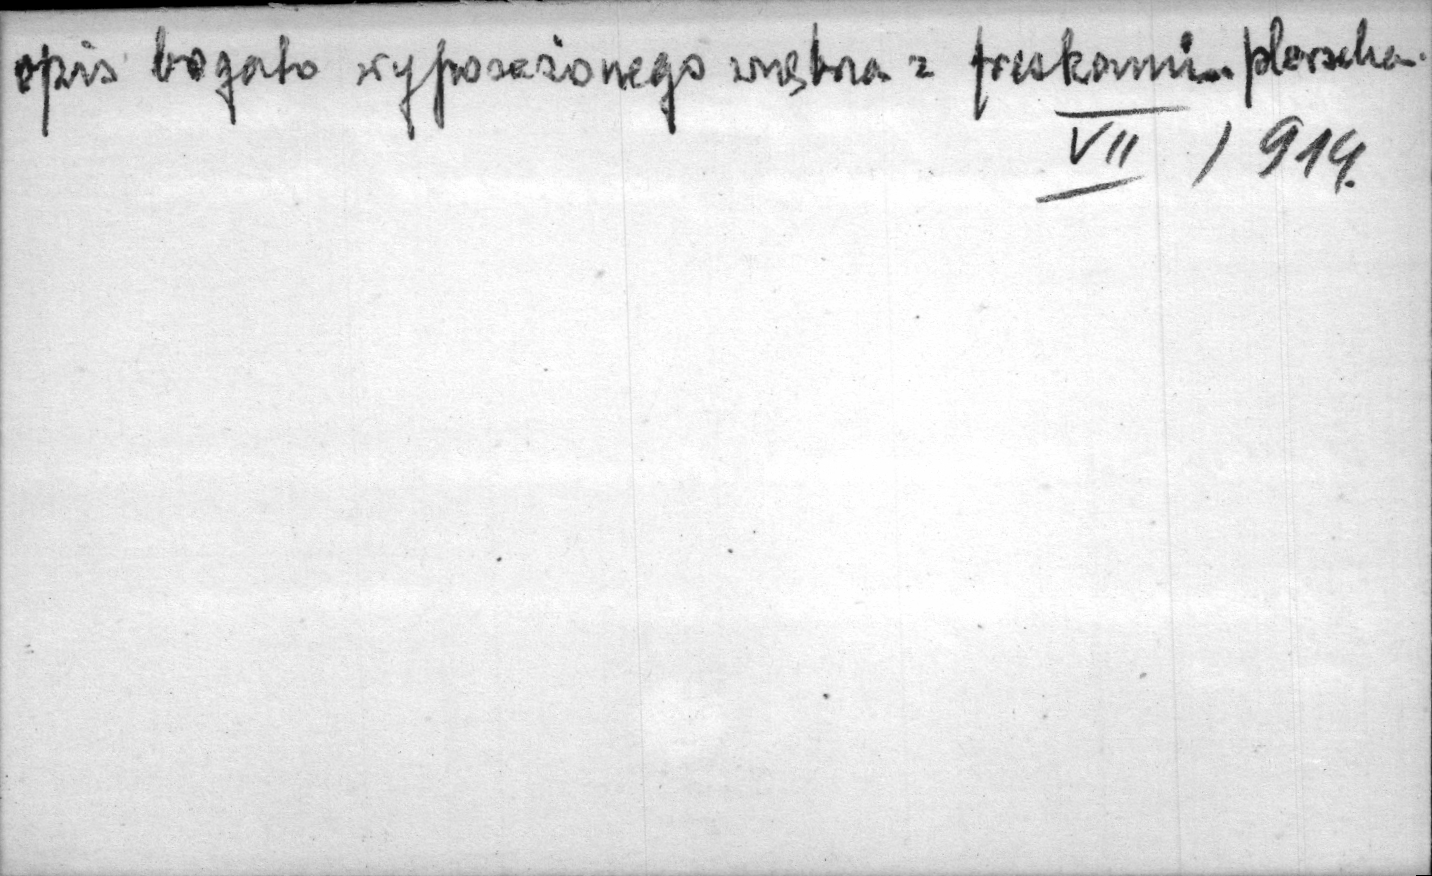 opis bogato wyposażonego wnętrza z freskami Plerscha.
VII / 914.